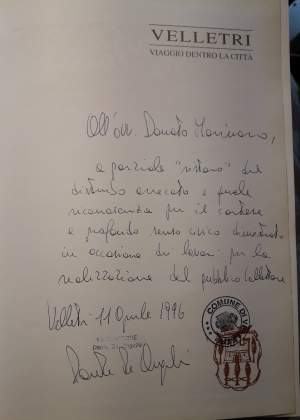 VELLETRI
VIAGGIO DENTRO LA CITTÀ
All'on. Donato
a parziale "ristoro" del
disturbo arrecato e quale
riconoscenza per il cortese
e profondo senso civico dimostrato
in occasione dei lavori per la
realizzazione del pubblico collettore
Velletri 11 Aprile 1996
COMUNE DI